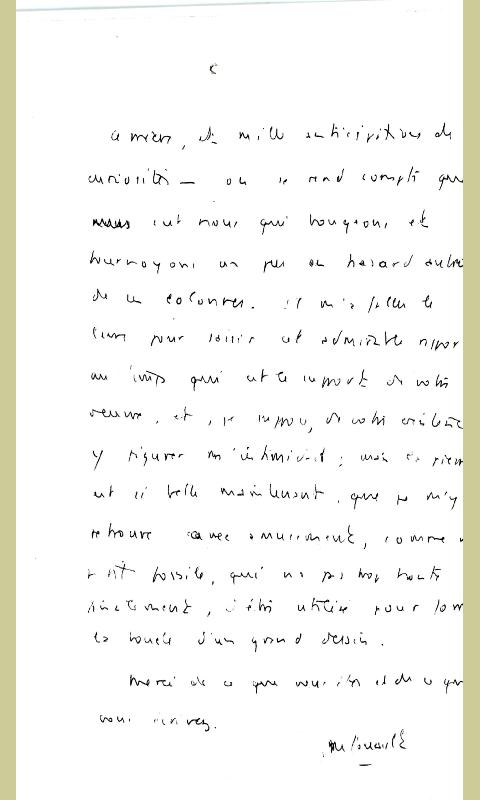 c
a mien, et mille anticipations de
curiosité — on se rend compte que
c'est nous qui bougeons et
tournoyons un peu au hasard
de ces colonnes. Il m'a fallu le
pour saisir cet admirable
au temps qui est le support de votre
oeuvre, et, je suppose, de votre
y figurer m'intimidait ; mais
est si belle maintenant, que je m'y
retrouve avec amusement, comme
possible, qui n'a pas trop honte
utilisé pour
la boucle d'un grand dessin.
Merci de ce que vous êtes et de ce que
vous
M Foucault